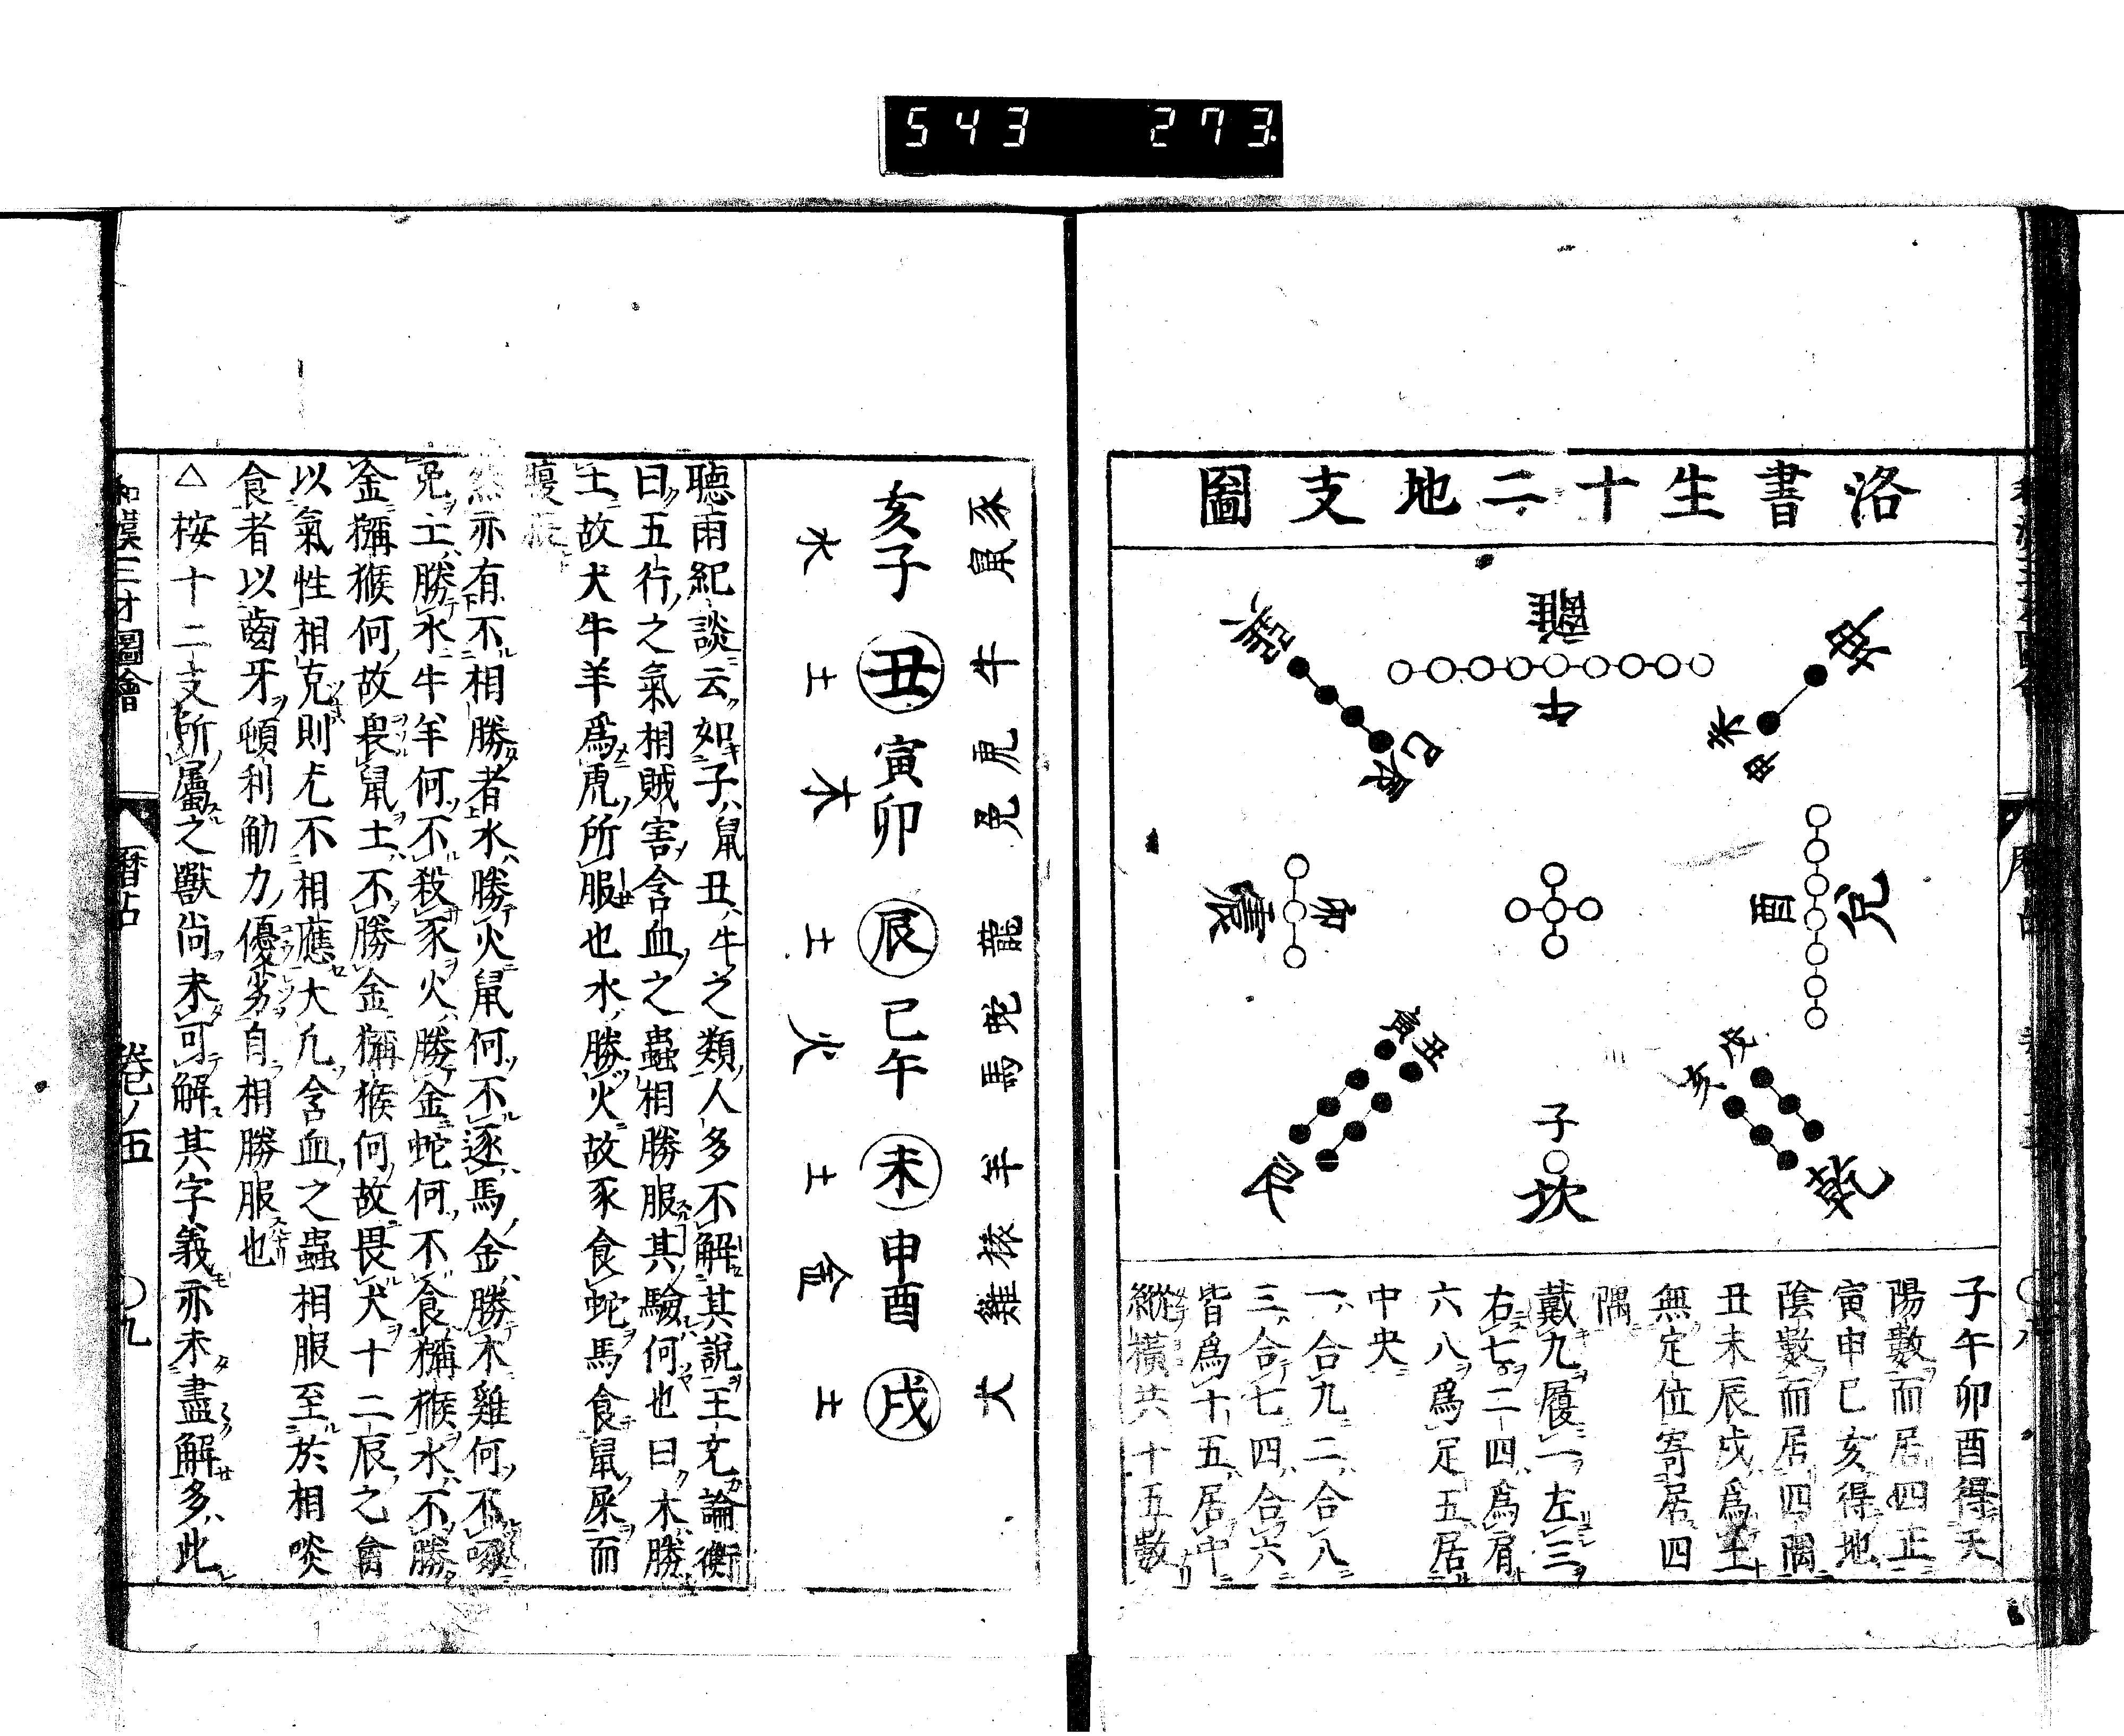 543 273
洛書生十二地支圖
離
午
坤
未
申
巽
巳
辰
兌
酉
震
卯
乾
戌
亥
子
坎
艮
丑
寅
子午卯酉得天
陽數而居四正
寅申巳亥得地
陰數而居四隅
丑未辰戌爲土
無定位寄居四
隅
戴九履一左三
右七二四爲肩
六八爲足五居
中央
一合九二合八
三合七四合六
皆爲十五居中
縱横共十五數
豕鼠 牛 虎兎 龍 蛇馬 羊 猿雞 犬
亥子 丑 寅卯 辰 巳午 未 申酉 戌
水 土 木 土 火 土 金 土
聽雨紀談云如子鼠丑牛之類人多不解其說王充論衡
曰五行之氣相賊害含血之蟲相勝服其驗何也曰木勝
土故犬牛羊爲虎所服也水勝火故豕食蛇馬食鼠屎而
腹脹
然亦有不相勝者水勝火鼠何不逐馬金勝木雞何不啄
兎土勝水牛羊何不殺豕火勝金蛇何不食獼猴水不勝
金獼猴何故畏鼠土不勝金獼猴何故畏犬十二辰之禽
以氣性相克則尤不相應大凡含血之蟲相服至於相啖
食者以齒牙頓利觔力優劣自相勝服也
△桉十二支所屬之獸尚未可解其字義亦未盡解多此
和漢三才圖會 曆占 卷ノ五 〇九